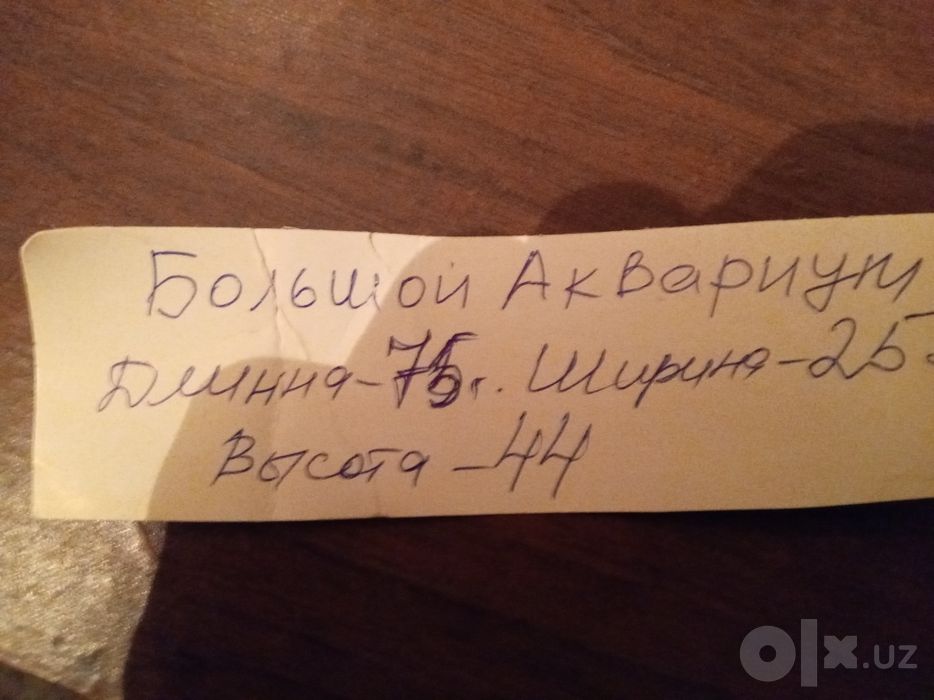 Большой Аквариум
Длинна-75. Ширина-25
Высота-44
olx.uz